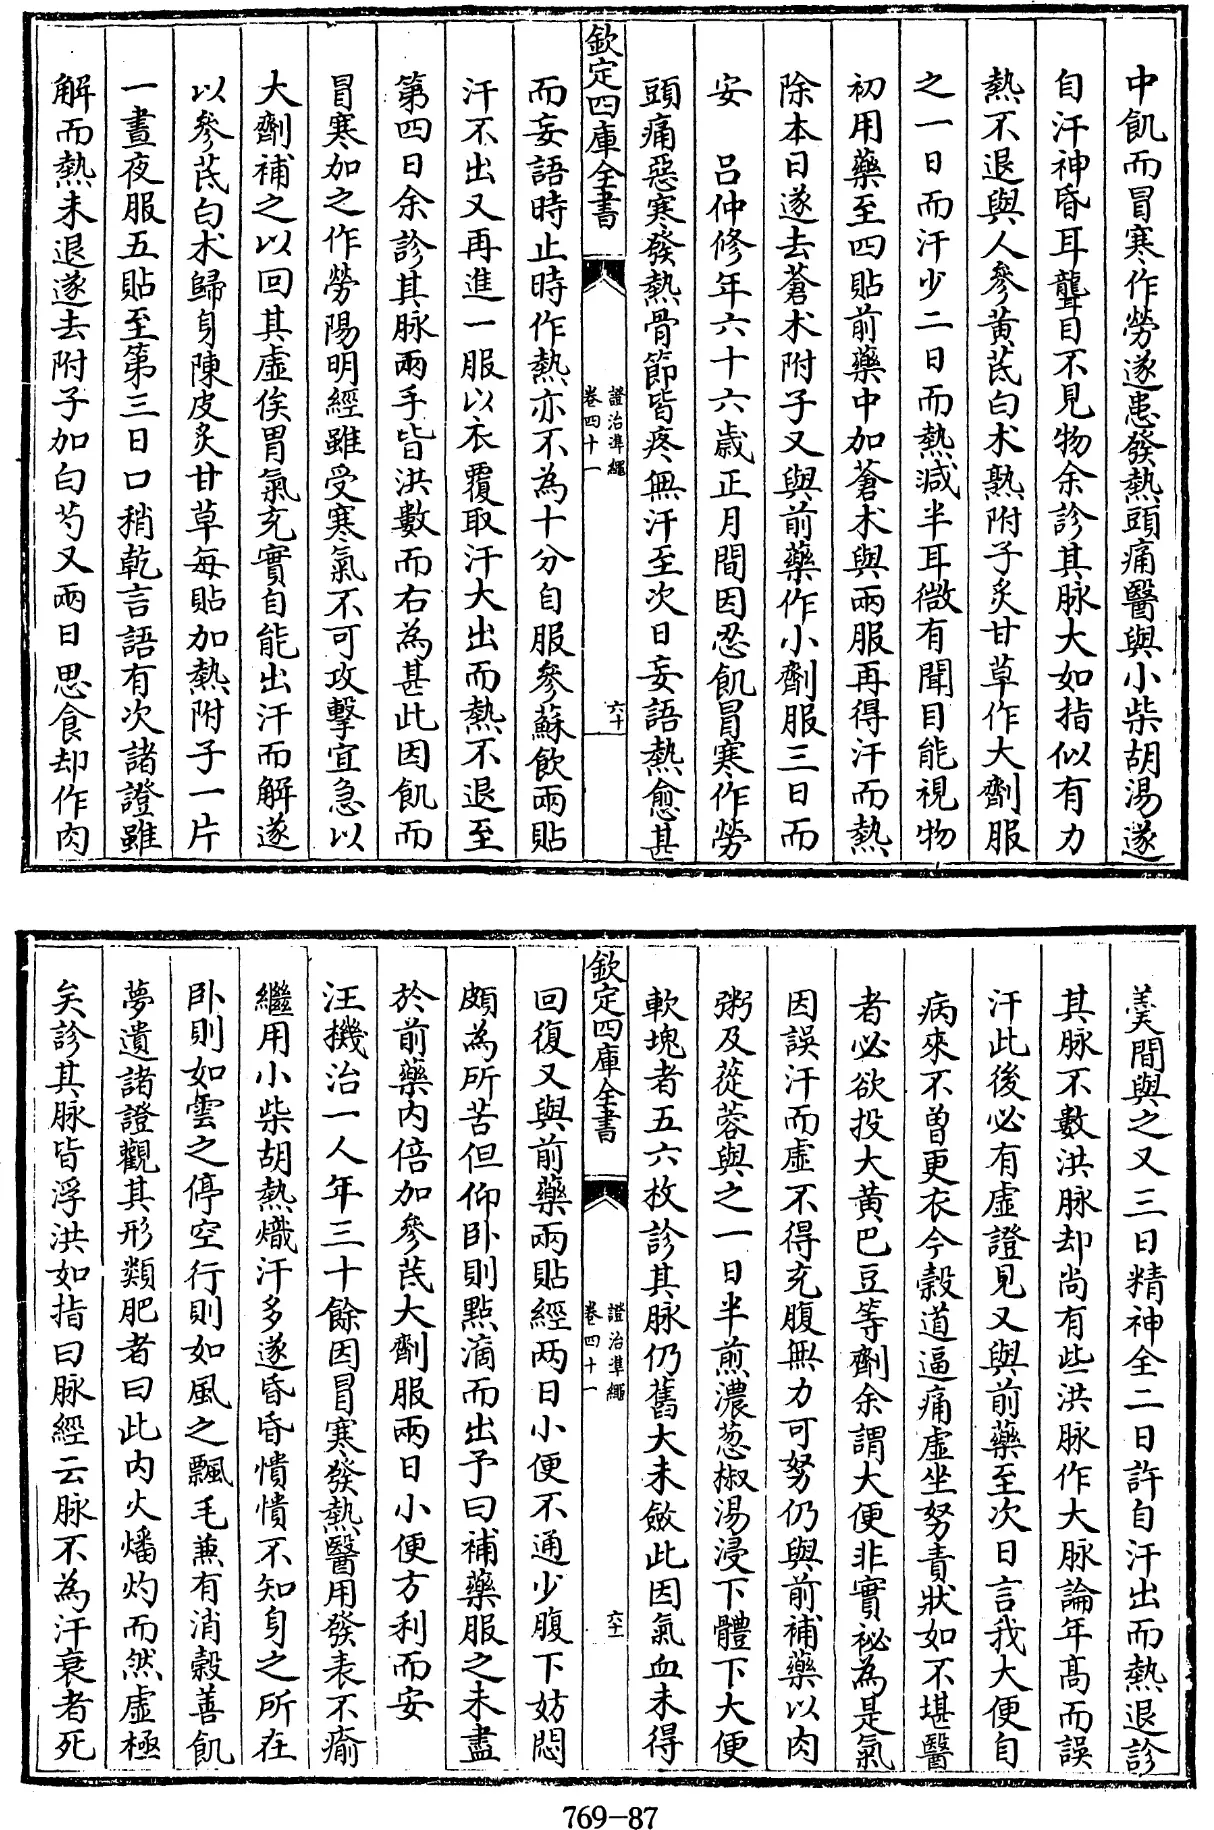 中飢而冒寒作勞遂患發熱頭痛醫與小柴胡湯遂
自汗神昏耳聾目不見物余診其脉大如指似有力
熱不退與人參黃茋白术熟附子炙甘草作大劑服
之一日而汗少二日而熱減半耳微有聞目能視物
初用藥至四貼前藥中加蒼术與兩服再得汗而熱
除本日遂去蒼术附子又與前藥作小劑服三日而
安　呂仲修年六十六歲正月間因忍飢冒寒作勞
頭痛惡寒發熱骨節皆疼無汗至次日妄語熱愈甚
欽定四庫全書
證治準繩
卷四十一
六十
而妄語時止時作熱亦不為十分自服參蘇飲兩貼
汗不出又再進一服以衣覆取汗大出而熱不退至
第四日余診其脉兩手皆洪數而右為甚此因飢而
冒寒加之作勞陽明經雖受寒氣不可攻擊宜急以
大劑補之以回其虛俟胃氣充實自能出汗而解遂
以參茋白术歸身陳皮炙甘草每貼加熟附子一片
一晝夜服五貼至第三日口稍乾言語有次諸證雖
解而熱未退遂去附子加白芍又兩日思食却作肉
羮間與之又三日精神全二日許自汗出而熱退診
其脉不數洪脉却尚有些洪脉作大脉論年高而誤
汗此後必有虛證見又與前藥至次日言我大便自
病來不曾更衣今榖道逼痛虛坐努責狀如不堪醫
者必欲投大黃巴豆等劑余謂大便非實祕為是氣
因誤汗而虛不得充腹無力可努仍與前補藥以肉
粥及蓯蓉與之一日半煎濃葱椒湯浸下體下大便
軟塊者五六枚診其脉仍舊大未斂此因氣血未得
欽定四庫全書
證治準繩
卷四十一
六十一
回復又與前藥兩貼經两日小便不通少腹下妨悶
頗為所苦但仰卧則點滴而出予曰補藥服之未盡
於前藥内倍加參茋大劑服兩日小便方利而安
汪機治一人年三十餘因冒寒發熱醫用發表不痊
繼用小柴胡熱熾汗多遂昏昏憒憒不知身之所在
卧則如雲之停空行則如風之飄毛兼有消榖善飢
夢遺諸證觀其形類肥者曰此内火燔灼而然虛極
矣診其脉皆浮洪如指曰脉經云脉不為汗衰者死
769-87